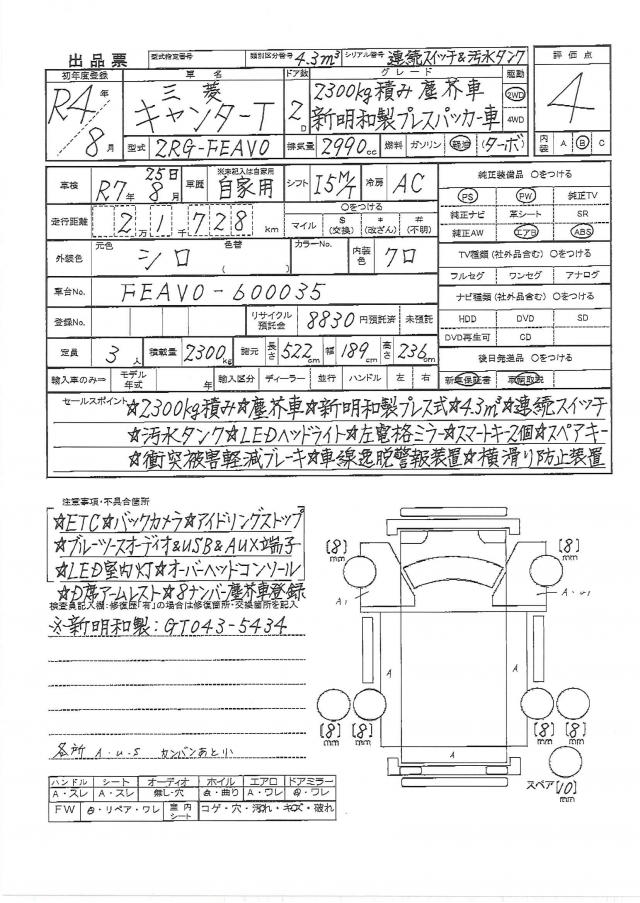 出品票
型式指定番号
類別区分番号 4.3m³
シリアル番号 連続スイッチ&汚水タンク
初年度登録
R4年
8月
車名
三菱
キャンターT
ドア数
2D
グレード
2300kg積み塵芥車
新明和製プレスパッカー車
駆動
2WD
4WD
評価点
4
型式 2RG-FEAV0
排気量 2990cc
燃料 ガソリン 軽油 (ターボ)
内装 A B C
車検 R7年25日8月
車歴 ※未記入は自家用
自家用
シフト I5M/T
冷房 AC
純正装備品 〇をつける
PS PW 純正TV
純正ナビ 革シート SR
純正AW エアB ABS
走行距離 2万1千728km
〇をつける
マイル $(交換) *(改ざん) #(不明)
外装色
元色 シロ
色替 ( )
カラーNo.
内装色 クロ
TV種類(社外品含む) 〇をつける
フルセグ ワンセグ アナログ
車台No. FEAV0-600035
ナビ種類(社外品含む) 〇をつける
HDD DVD SD
DVD再生可 CD
登録No.
リサイクル預託金 8830円預託済 未預託
定員 3人
積載量 2300kg
諸元 長さ 522cm 幅 189cm 高さ 236cm
後日発送品 〇をつける
新車保証書 車両取説
輸入車のみ⇒ モデル年式 年
輸入区分 ディーラー 並行 ハンドル 左 右
セールスポイント ☆2300kg積み☆塵芥車☆新明和製プレス式☆4.3m³☆連続スイッチ
☆汚水タンク☆LEDヘッドライト☆左電格ミラー☆スマートキー2個☆スペアキー
☆衝突被害軽減ブレーキ☆車線逸脱警報装置☆横滑り防止装置
注意事項・不具合箇所
☆ETC☆バックカメラ☆アイドリングストップ
☆ブルーツースオーディオ&USB&AUX端子
☆LED室内灯☆オーバーヘッドコンソール
☆D席アームレスト☆8ナンバー塵芥車登録
検査員記入欄:修復歴「有」の場合は修復箇所・交換箇所を記入
※新明和製:GT043-5434
各所 A・U・S カンバンあと小
[8]mm
[8]mm
A1
A・U1
A
A
A
[8]mm
[8]mm
[8]mm
[8]mm
スペア [10]mm
ハンドル シート オーディオ ホイル エアロ ドアミラー
A・スレ A・スレ 無し・穴 曲り A・ワレ ワレ
FW リペア・ワレ
室内シート コゲ・穴・汚れ・キズ・破れ